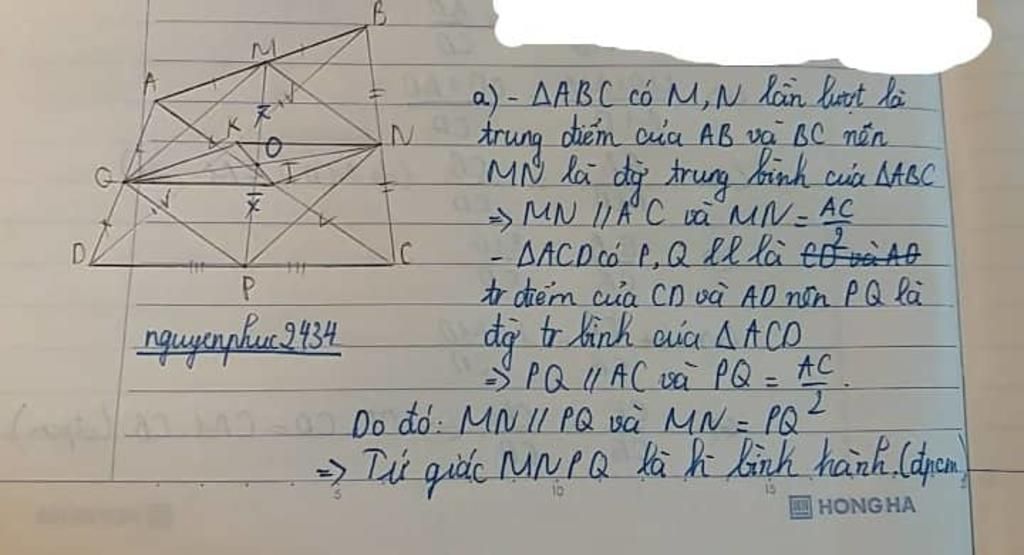 B
M
A
K
O
N
Q
I
D
P
C
a) - ΔABC có M, N lần lượt là
trung điểm của AB và BC nên
MN là đg trung bình của ΔABC
=> MN // AC và MN = AC/2
- ΔACD có P, Q ll là CD và AD
tr điểm của CD và AD nên PQ là
nguyenphuc2434
đg tr bình của ΔACD
=> PQ // AC và PQ = AC/2.
Do đó: MN // PQ và MN = PQ
=> Tứ giác MNPQ là h bình hành. (đpcm)
5 10 15
HONG HA